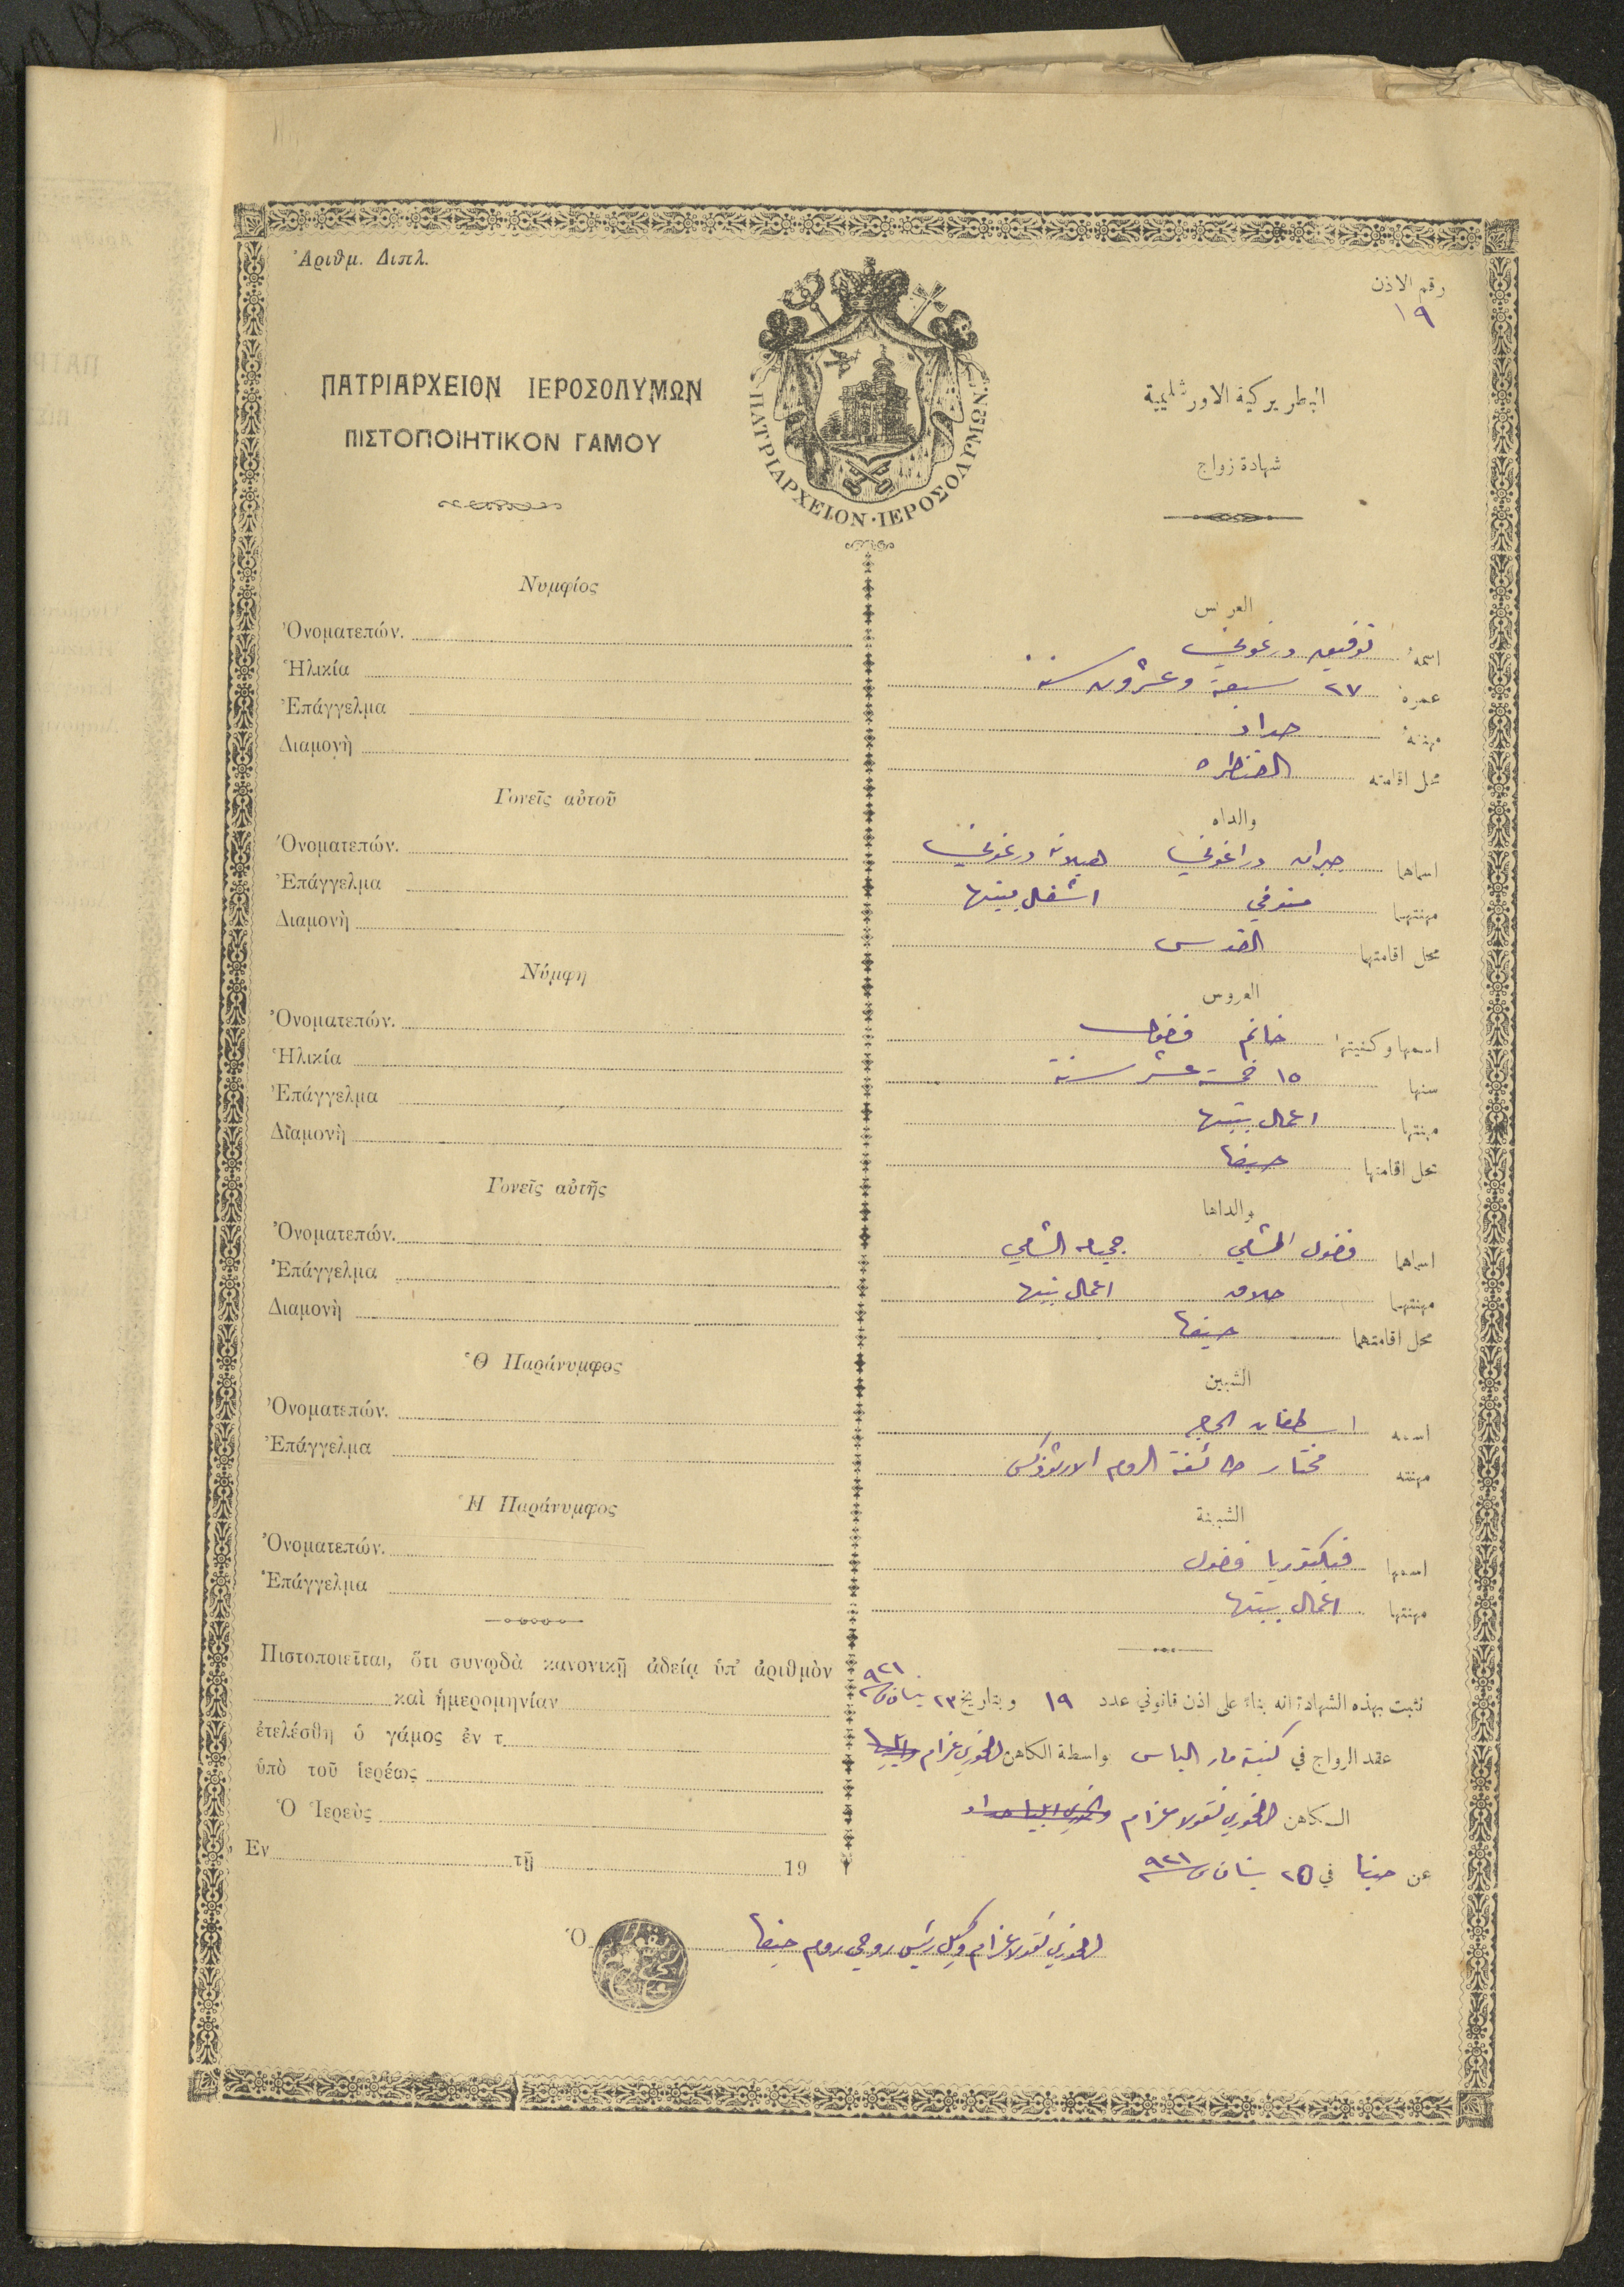 Ἀριθμ. Διπλ.
رقم الاذن
١٩
ΠΑΤΡΙΑΡΧΕΙΟΝ ΙΕΡΟΣΟΛΥΜΩΝ
ΠΙΣΤΟΠΟΙΗΤΙΚΟΝ ΓΑΜΟΥ
ΠΑΤΡΙΑΡΧΕΙΟΝ·ΙΕΡΟΣΟΛΥΜΩΝ
البطريركية الاورشليمية
شهادة زواج
Νυμφίος
Ὀνοματεπών.
Ἡλικία
Ἐπάγγελμα
Διαμονὴ
Γονεῖς αὐτοῦ
Ὀνοματεπών.
Ἐπάγγελμα
Διαμονὴ
Νύμφη
Ὀνοματεπών.
Ἡλικία
Ἐπάγγελμα
Διαμονὴ
Γονεῖς αὐτῆς
Ὀνοματεπών.
Ἐπάγγελμα
Διαμονὴ
Ὁ Παράνυμφος
Ὀνοματεπών.
Ἐπάγγελμα
Ἡ Παράνυμφος
Ὀνοματεπών.
Ἐπάγγελμα
Πιστοποιεῖται, ὅτι συνῳδὰ κανονικῇ ἀδείᾳ ὑπ' ἀριθμὸν
καὶ ἡμερομηνίαν
ἐτελέσθη ὁ γάμος ἐν τ.
ὑπὸ τοῦ ἱερέως
Ὁ Ἱερεὺς
Ἐν τῇ 19
العريس
اسمهُ توفيق درغوني
عمره ٢٧ سبعة وعشرون سنة
مهنتهُ حداد
محل اقامته القنطره
والداه
اسماهما جبران دراغوني هيلانه درغوني
مهنتهما متوفي اشغال بيتها
محل اقامتهما القدس
العروس
اسمها وكنيتها خانم فضول
سنها ١٥ خمسة عشر سنة
مهنتها اعمال بيتها
محل اقامتها حيفا
والداها
اسماهما فضول الشامي جميله الشامي
مهنتهما حلاق اعمال بيتها
محل اقامتهما حيفا
الشبين
اسمه اسطفان الحجر
مهنته مختار طائفة الروم الارثوذكس
الشبينة
اسمها فيكتوريا فضول
مهنتها اعمال بيتها
نثبت بهذه الشهادة انه بناء على اذن قانوني عدد ١٩ وبتاريخ ٢٣ نيسان ٩٢١
عقد الزواج في كنيسة مار الياس بواسطة الكاهن الخوري عزام
الكاهن الخوري نقولا عزام والخوري ايليا حداد
عن حيفا في ٢٥ نيسان ٩٢١
Ὁ الخوري نقولا عزام وكيل رئيس روحي روم حيفا